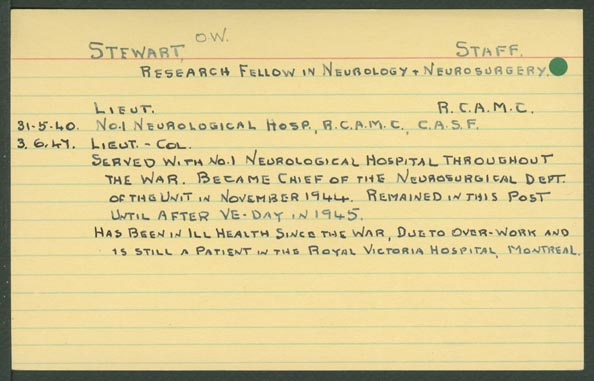 STEWART, O.W. STAFF.
RESEARCH FELLOW IN NEUROLOGY + NEUROSURGERY.
LIEUT. R.C.A.M.C.
31-5-40. NO.1 NEUROLOGICAL HOSP., R.C.A.M.C., C.A.S.F.
3.6.47. LIEUT.-COL.
SERVED WITH NO.1 NEUROLOGICAL HOSPITAL THROUGHOUT
THE WAR. BECAME CHIEF OF THE NEUROSURGICAL DEPT.
OF THE UNIT IN NOVEMBER 1944. REMAINED IN THIS POST
UNTIL AFTER VE-DAY IN 1945.
HAS BEEN IN ILL HEALTH SINCE THE WAR, DUE TO OVER-WORK AND
IS STILL A PATIENT IN THE ROYAL VICTORIA HOSPITAL, MONTREAL.